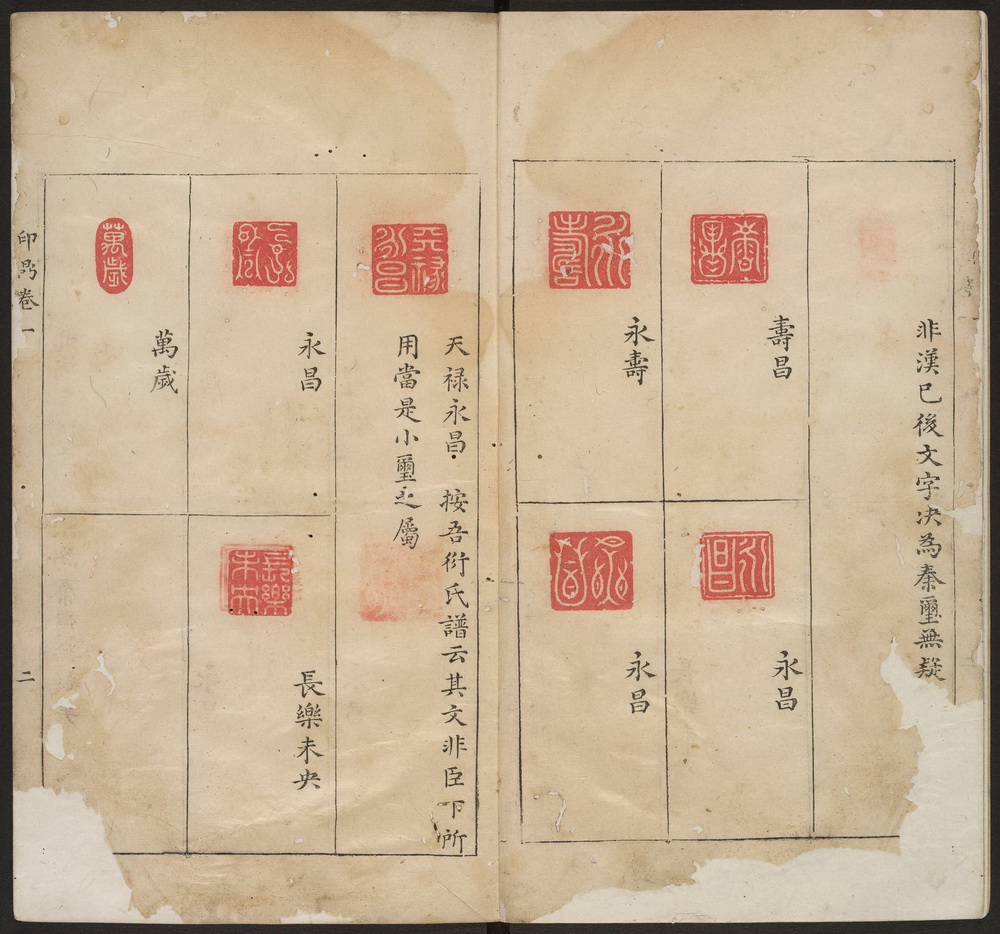 非漢已後文字决為秦璽無疑
壽昌
永昌
永壽
永昌
天禄永昌 按吾衍氏譜云其文非臣下所
用當是小璽之屬
天禄永昌
永昌
長樂未央
長樂未央
萬歲
萬歲
印
卷一
二